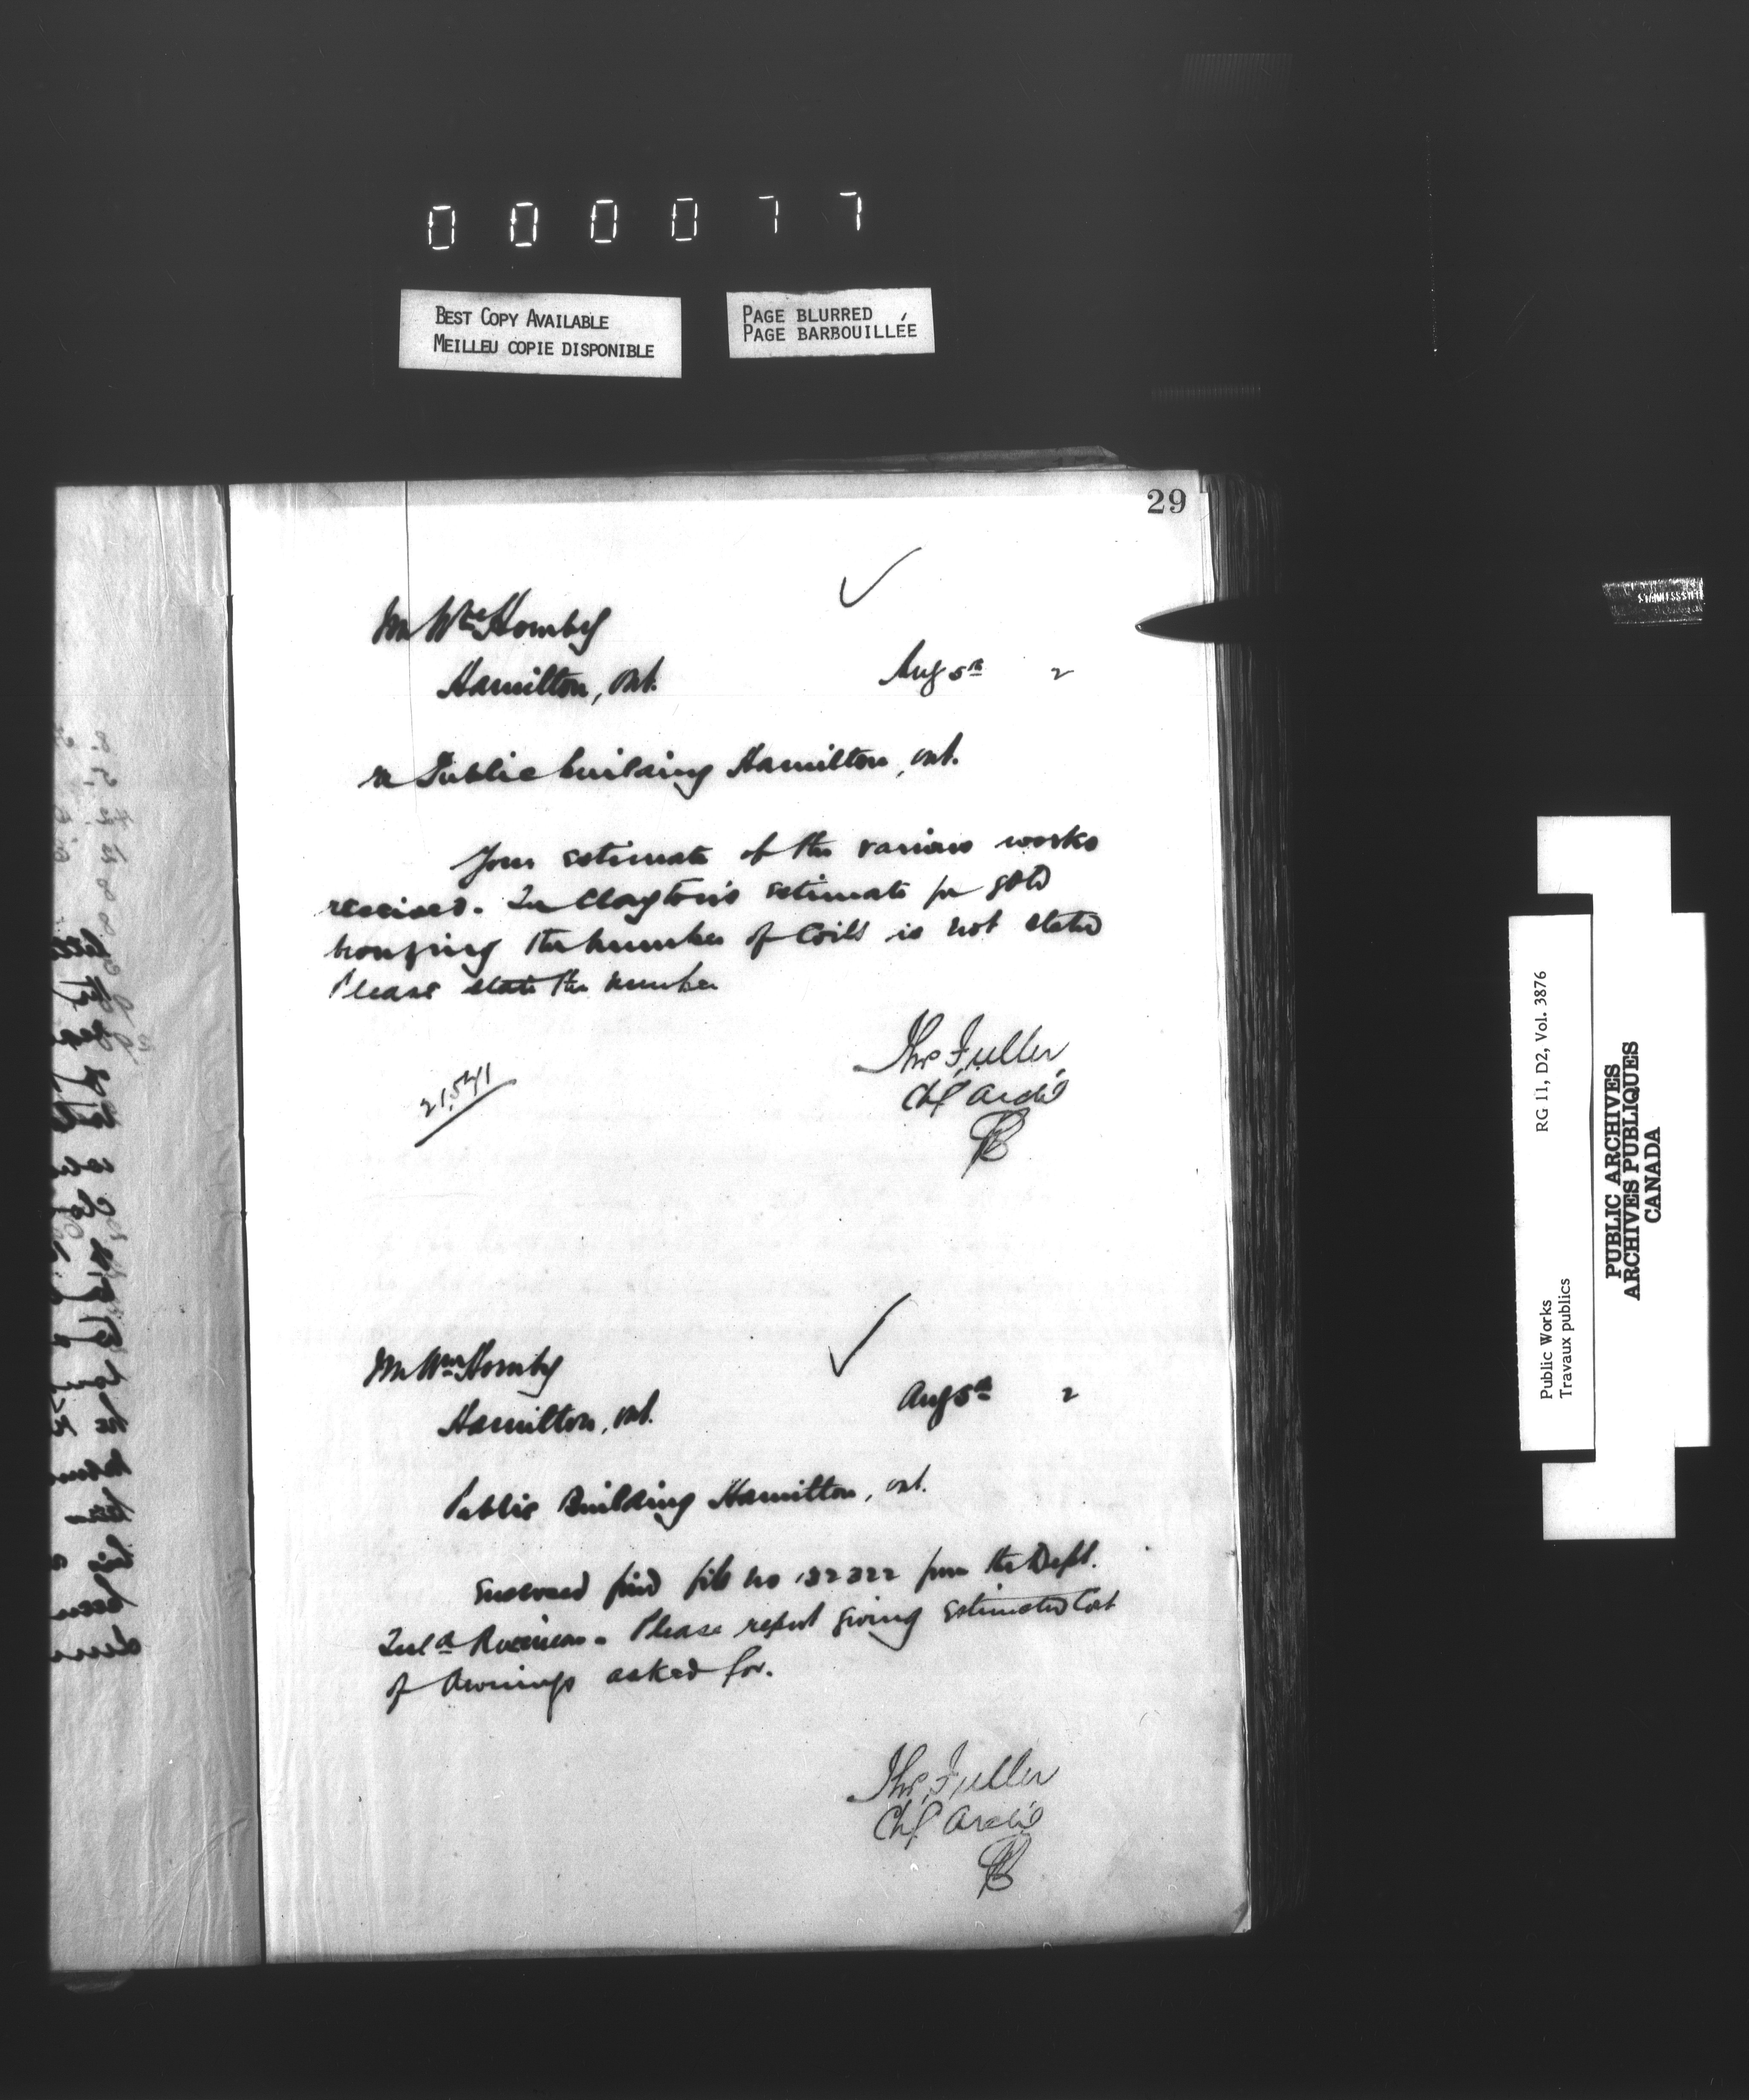 000077
BEST COPY AVAILABLE
MEILLEU COPIE DISPONIBLE
PAGE BLURRED
PAGE BARBOUILLÉE
29
Mr Wm Hornby
Hamilton, Ont.
Aug 5th 2
re Public building Hamilton, Ont.
Your estimate of the various works
received. In Clayton's estimate for gold
bronzing the number of Coils is not stated
Please state the number
Thos Fuller
Chf Archt
21,541
Mr Wm Hornby
Hamilton, Ont.
Aug 5th 2
Public Building Hamilton, Ont.
Enclosed find file no 132322 from the Dept.
Inld Revenue. Please report giving estimated Cost
of Awnings asked for.
Thos Fuller
Chf Archt
STAINLESS STEEL
Public Works
Travaux publics
RG 11, D2, Vol. 3876
PUBLIC ARCHIVES
ARCHIVES PUBLIQUES
CANADA